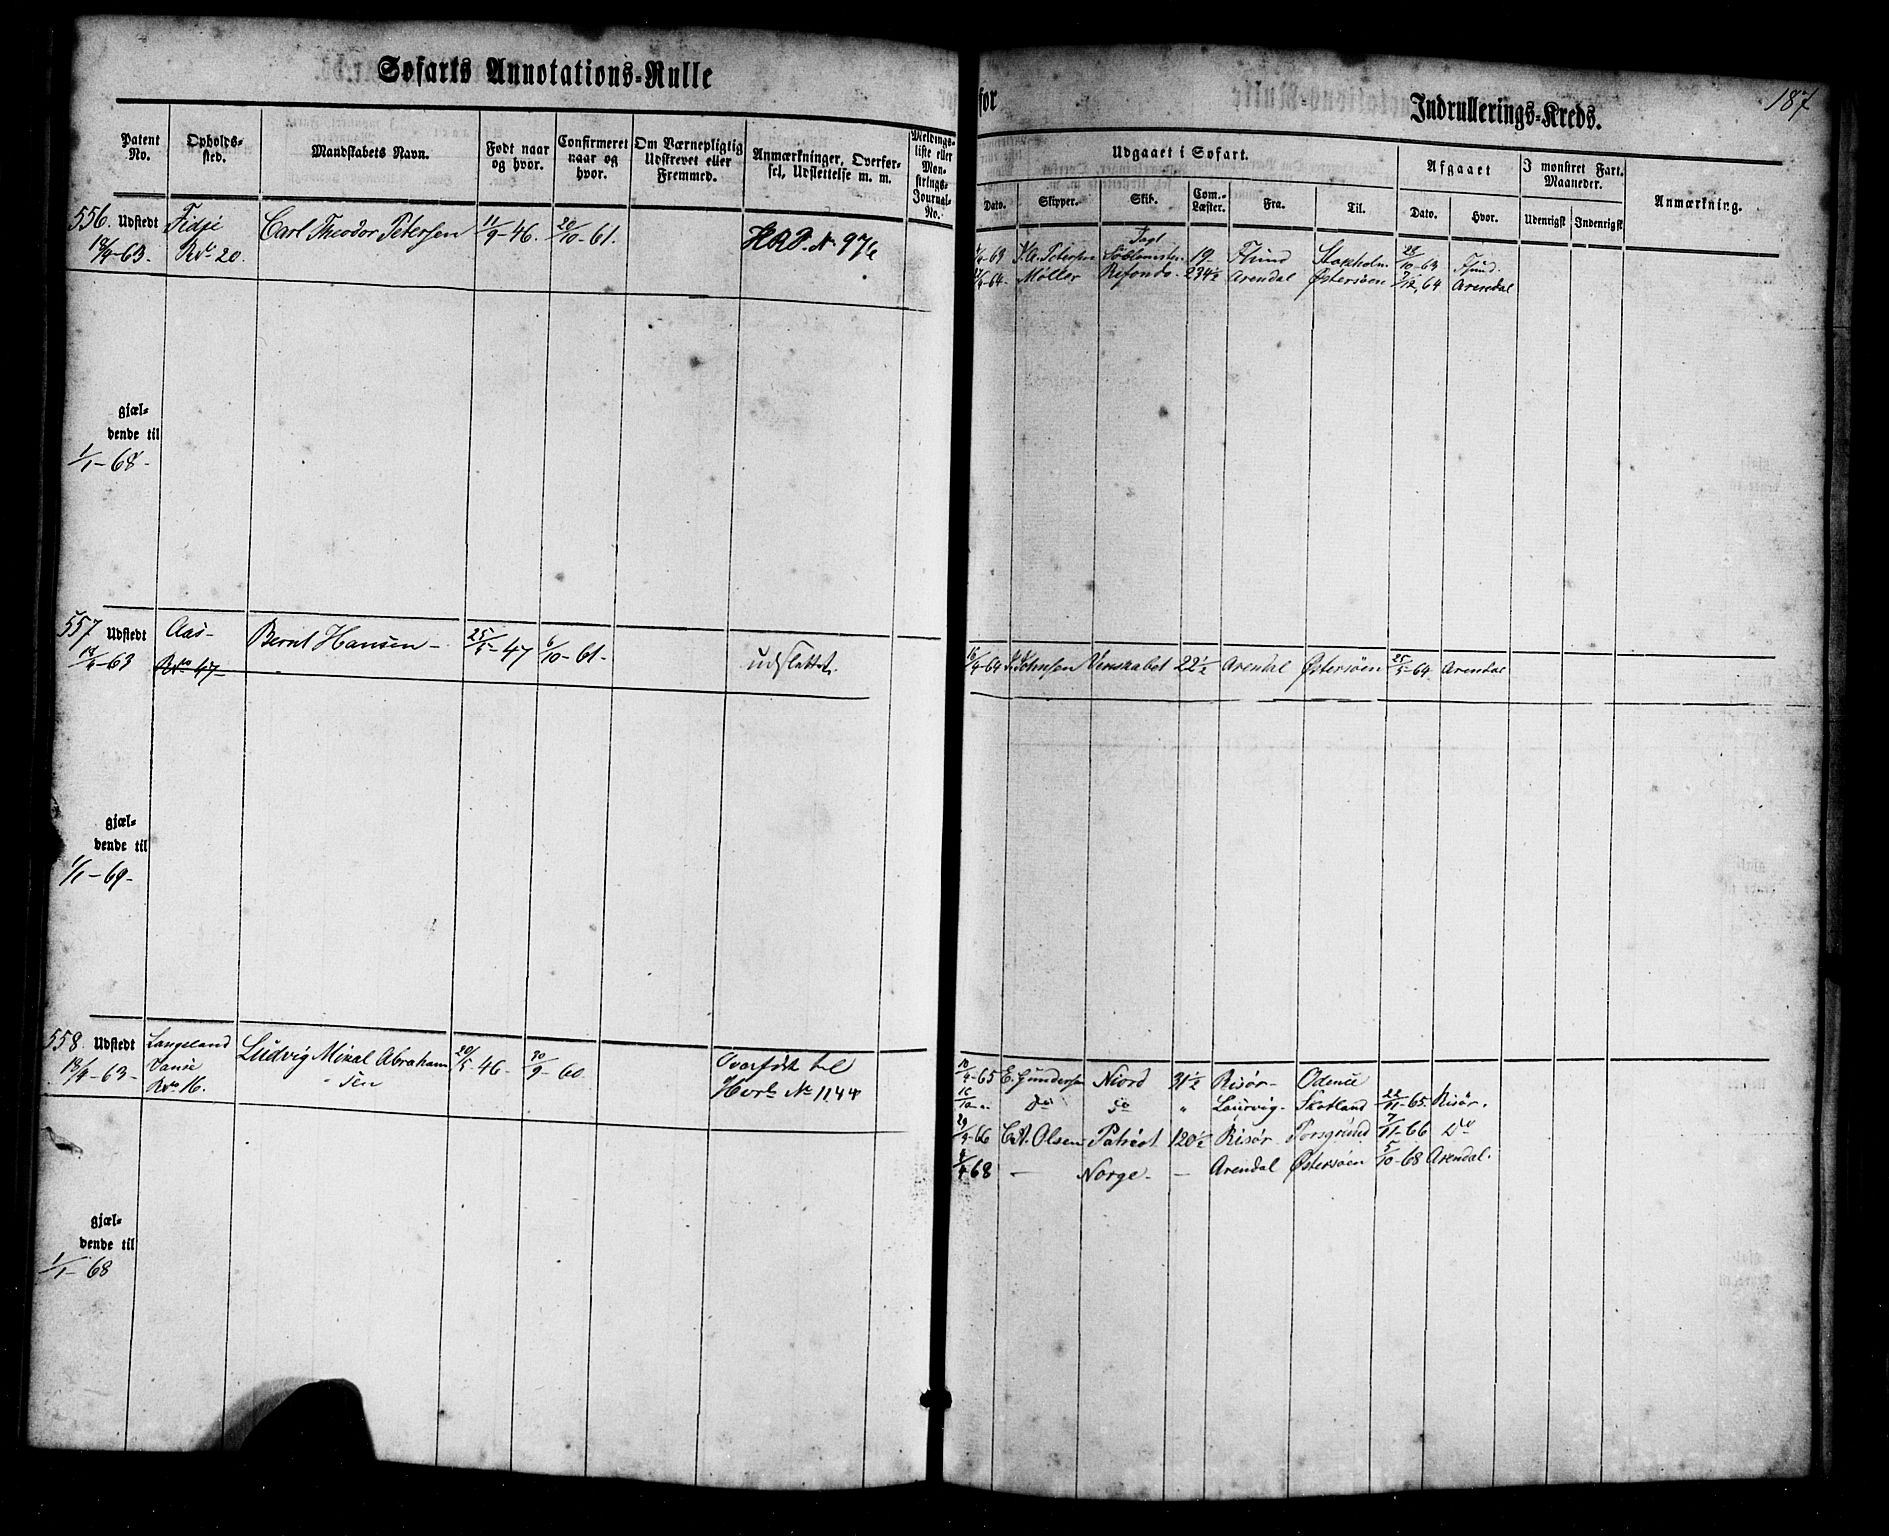 Søfarts Annotations-Rulle
for
Indrullerings-Kreds.
187
Patent No.
Opholds-sted.
Mandskabets Navn.
Født naar og hvor.
Confirmeret naar og hvor.
Om Værnepligtig Udskrevet eller Fremmed.
Anmærkninger, Overfør-sel, Udslettelse m. m.
Meldings-liste eller Mønstrings-Journal-No.
Udgaaet i Søfart.
Dato.
Skipper.
Skib.
Com.-Læster.
Fra.
Til.
Afgaaet
Dato.
Hvor.
I mønstret Fart. Maaneder.
Udenrigsk
Indenrigsk
Anmærkning.
556. Udstedt Fidje Carl Theodor Petersen 11/9-46. 20/10-61. H.R.P. No 976
18/4-63. No 20.
-63 Petersen Jagt 19 Tsund Stokholm 28/10-63 Tsund.
-64. Møller 234½ Arendal Østersøen 7/12 64 Arendal
gjæl-
dende til
1/1-68-
557 Udstedt Aas- Bernt Hansen- 25/5-47 6/10-61- udslettet.
18/4-63 No 47
16/4-64 Johnsen Venskabet 22½ Arendal Østersøen 25/5-64. Arendal
gjæl-
dende til
1/1-69-
558. Udstedt Langeland Ludvig Mikal Abraham 20/5-46- 30/9-60. Overført til
18/4-63- Vansé sen Hovr No 1144
No 16.
10/4-65 E. Gundersen Niord 31½ Risør- Odense
16/10-" Do Do " Laurvig- Skotland 22/11-65. Risør.
29/3-66 Olsen Patriot 120½ Risør Porsgrund 7/11-66 Do
4-68 - Norge- - Arendal Østersøen 5/10-68 Arendal.
gjæl-
dende til
1/1-68